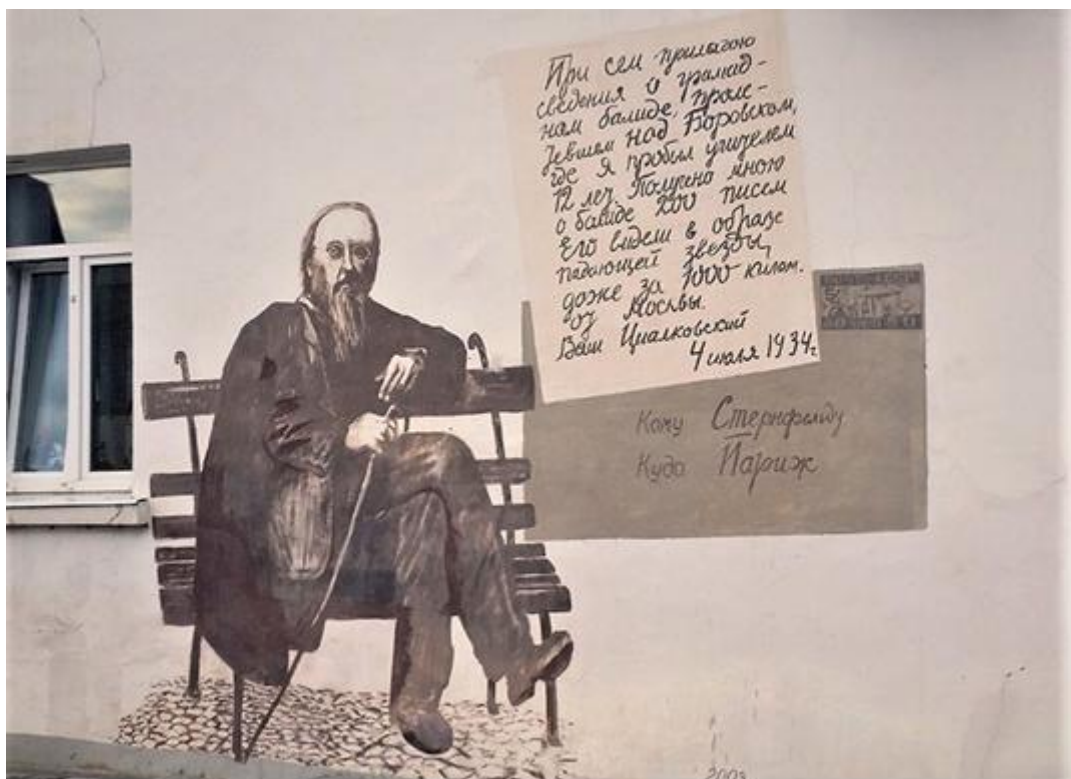 При сем прилагаю
сведения о громад-
ном балиде, проле-
тевшем над Боровском,
где я пробыл учителем
12 лет. Получено мною
о балиде 200 писем
Его видели в образе
падающей звезды,
даже за 1000 килом.
от Москвы.
Ваш Циалковский
4 июля 1934г.
Кому Стернфельду
Куда Париж